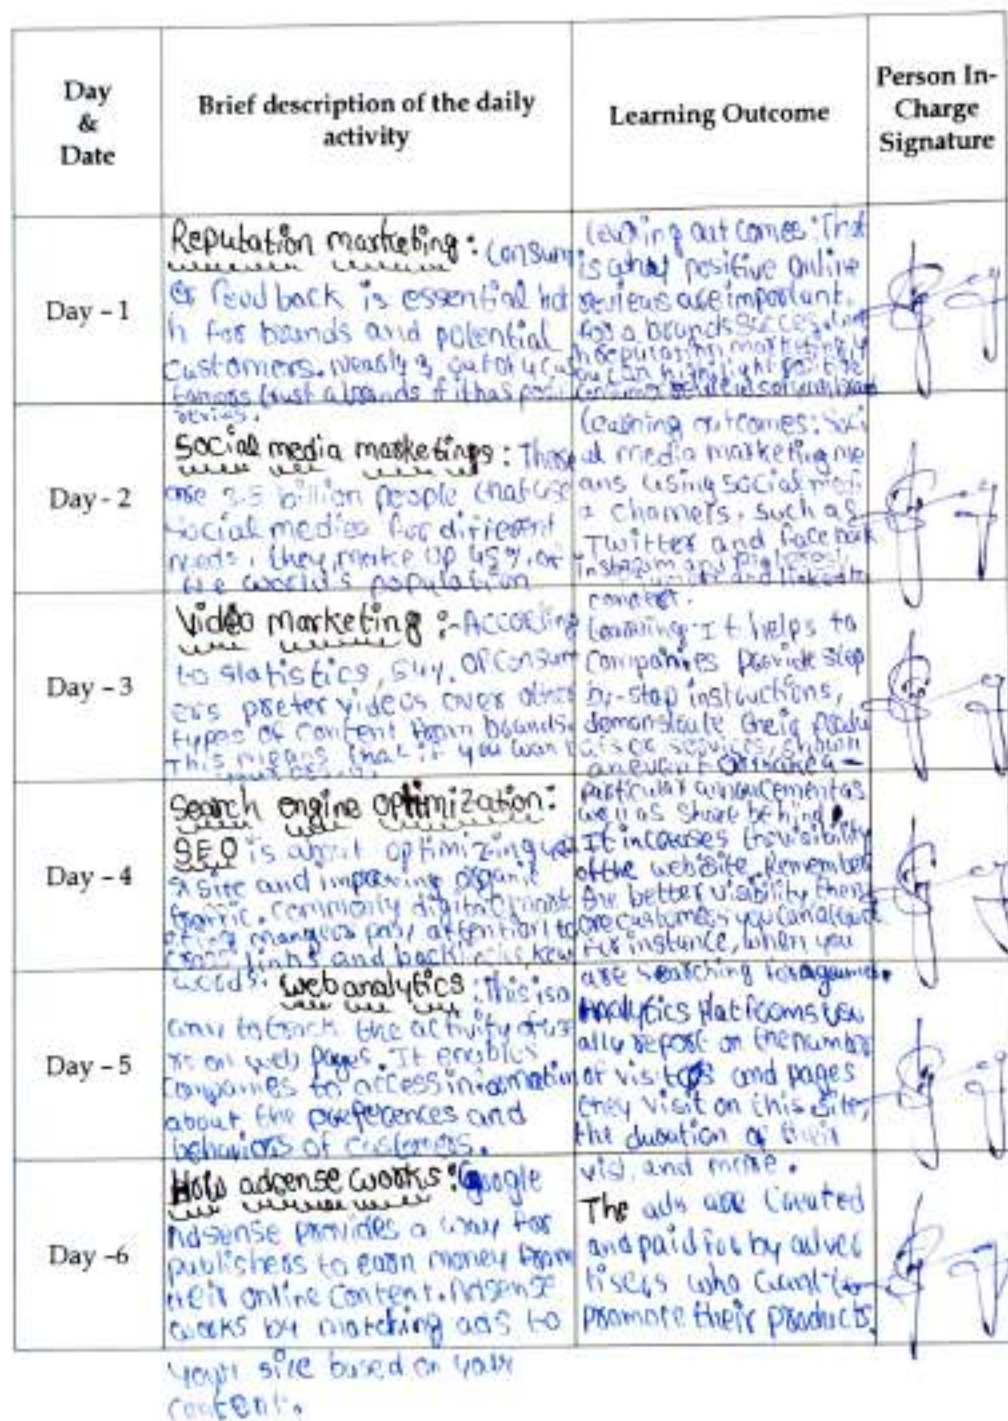 Day
&
Date
Brief description of the daily
activity
Learning Outcome
Person In-
Charge
Signature
Day – 1
Reputation marketing: Consum
er feed back is essential bot
h for brands and potential
customers. Nearly 3 out of 4 cus
tomers trust a brands if it has posi
Learning out comes: That
is what positive online
reviews are important.
for a brands success
n reputation marketing y
ou can highlight positive
Day - 2
Social media marketing: There
are 3.5 billion people that use
social medias for different
needs, they make up 45%. of
the world's population
Learning outcomes: Soci
al media marketing me
ans using social medi
a channels, such as
Twitter and facebook
Instagram and
and linkedin
Day – 3
Video marketing :- According
to statistics, 54%. of consum
ers preter videos over other
types of content from brands.
This means that if you want
connect.
Learning: It helps to
companies provide step
by-step instructions,
demonstrate their produ
cts or services, show
an event or make a
Day – 4
Search engine optimization:
SEO is about optimizing
a site and improving organic
traffic. Commonly digital mark
eting mangers pay attention to
cross links and backlinks, key
particular announcement as
well as share behind
It increases the visibility
of the website. Remember
the better visibility, the m
ore customers you can attract
For instance, when you
Day – 5
words. web analytics: This is a
way to track the activity of use
rs on web pages. It enables
companies to access information
about the preferences and
behaviors of customers.
are searching for a
Analytics Platforms usu
ally report on the number
of visitors and pages
they visit on this site,
the duration of their
Day –6
How adsense works: Google
Adsense provides a way for
publishers to earn money from
their online content. Adsense
works by matching ads to
your site based on your
content.
visi, and more.
The ads are Created
and paid for by adver
tisers who want to
promote their products.